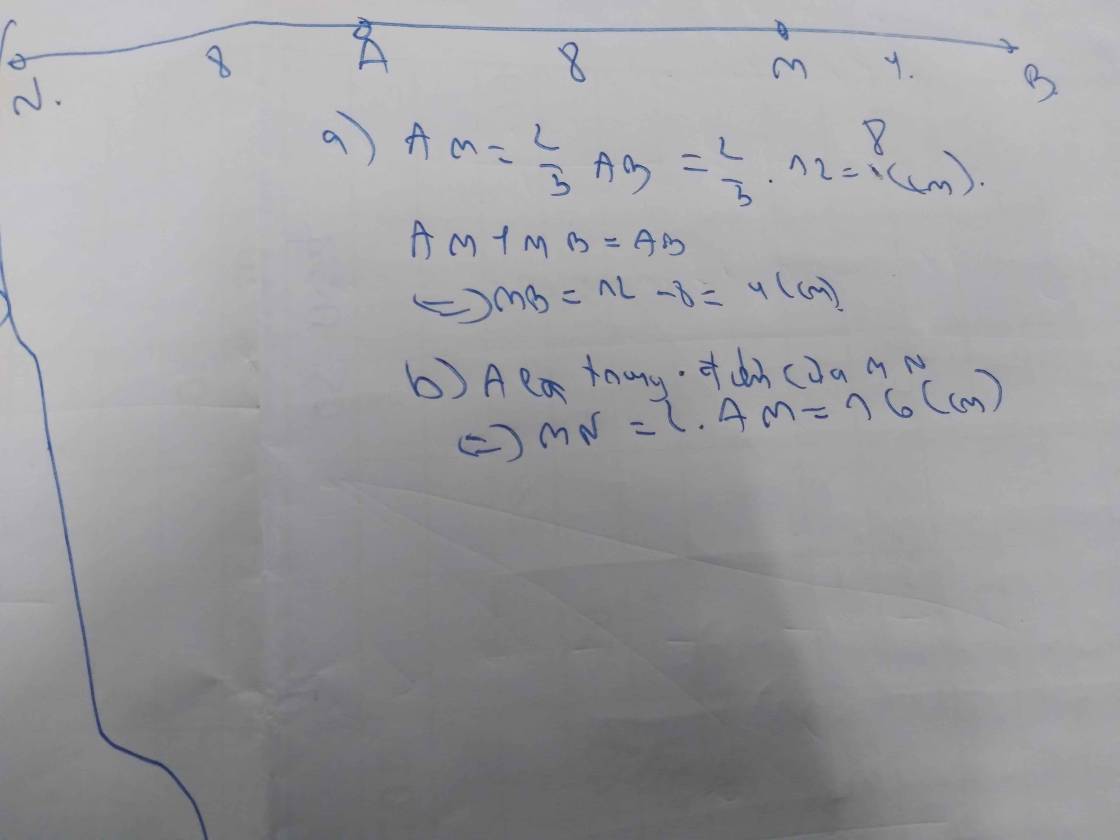 8 8 4.
N. A M B
a) AM = 2/3 AB = 2/3 . 12 = 8 (cm).
AM + MB = AB
<=> MB = 12 - 8 = 4 (cm)
b) A là trung điểm của MN
<=> MN = 2 . AM = 16 (cm)